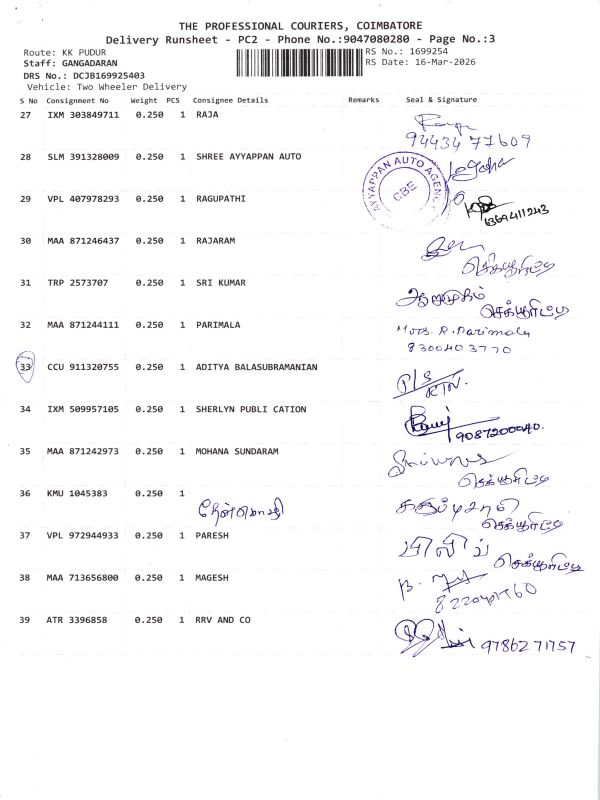 THE PROFESSIONAL COURIERS, COIMBATORE
Delivery Runsheet - PC2 - Phone No.:9047080280 - Page No.:3
Route: KK PUDUR
RS No.: 1699254
Staff: GANGADARAN
RS Date: 16-Mar-2026
DRS No.: DCJB169925403
Vehicle: Two Wheeler Delivery
S No Consignment No Weight PCS Consignee Details Remarks Seal & Signature
27 IXM 303849711 0.250 1 RAJA
94434 77609
28 SLM 391328009 0.250 1 SHREE AYYAPPAN AUTO
AYYAPPAN AUTO AGENCY
CBE
29 VPL 407978293 0.250 1 RAGUPATHI
6369411243
30 MAA 871246437 0.250 1 RAJARAM
செக்யூரிட்டி
31 TRP 2573707 0.250 1 SRI KUMAR
ஆறுமுகம்
செக்யூரிட்டி
32 MAA 871244111 0.250 1 PARIMALA
Mrs. R. Parimala
8300403770
33 CCU 911320755 0.250 1 ADITYA BALASUBRAMANIAN
P/S
RTN.
34 IXM 509957105 0.250 1 SHERLYN PUBLI CATION
9087200040.
35 MAA 871242973 0.250 1 MOHANA SUNDARAM
செக்யூரிட்டி
36 KMU 1045383 0.250 1
தேன்மொழி
செக்யூரிட்டி
37 VPL 972944933 0.250 1 PARESH
பிலிப்
செக்யூரிட்டி
38 MAA 713656800 0.250 1 MAGESH
39 ATR 3396858 0.250 1 RRV AND CO
9786271757